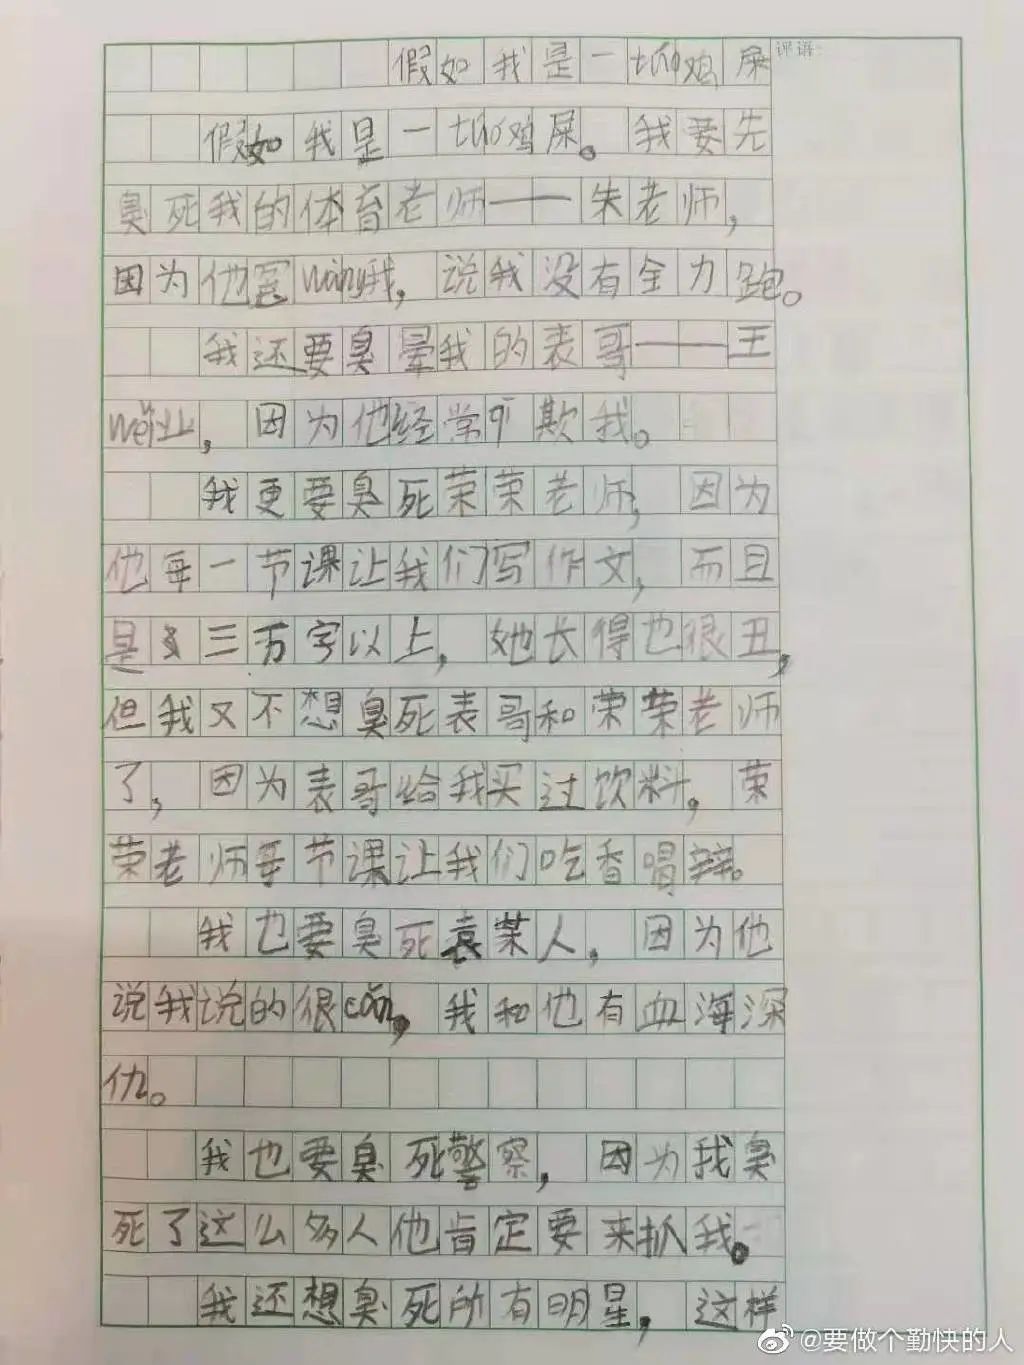 假如我是一tuó鸡屎
评语:
假如我是一tuó鸡屎。我要先
臭死我的体育老师——朱老师，
因为他冤wàng我，说我没有全力跑。
我还要臭晕我的表哥——王
wěi业，因为他经常欺我。
我更要臭死荣荣老师，因为
他每一节课让我们写作文，而且
是三万字以上，她长得也很丑，
但我又不想臭死表哥和荣荣老师
了，因为表哥给我买过饮料，荣
荣老师每节课让我们吃香喝辣。
我也要臭死袁某人，因为他
说我说的很cǎn，我和他有血海深
仇。
我也要臭死警察，因为我臭
死了这么多人他肯定要来抓我。
我还想臭死所有明星，这样
@要做个勤快的人